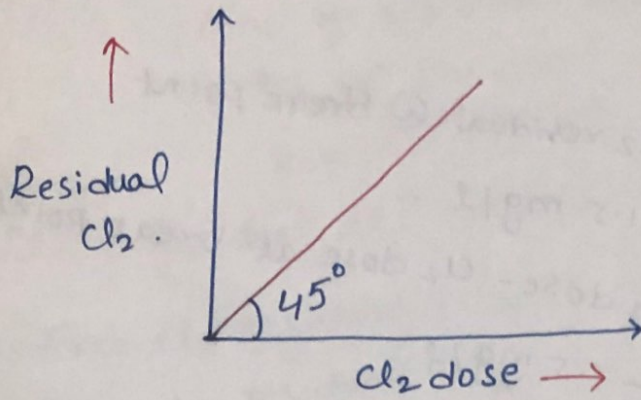 Residual
Cl₂.
45°
Cl₂ dose